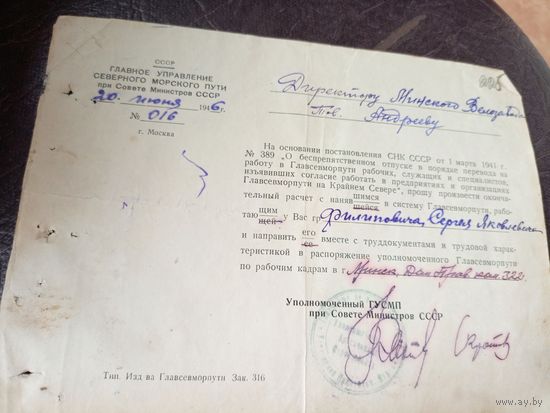 СССР
ГЛАВНОЕ УПРАВЛЕНИЕ
СЕВЕРНОГО МОРСКОГО ПУТИ
при Совете Министров СССР
20 июня 1946 г.
№ 016
г. Москва
Директору Минского Велозавода
Тов. Андрееву
На основании постановления СНК СССР от 1 марта 1941 г.
№ 389 "О беспрепятственном отпуске в порядке перевода на
работу в Главсевморпути рабочих, служащих и специалистов,
изъявивших согласие работать в предприятиях и организациях
Главсевморпути на Крайнем Севере", прошу произвести оконча-
тельный расчет с наняв шимся шейся в систему Главсевморпути, рабо-
таю щим щей у Вас гр. Филиповича, Сергея Яковлевича
и направить его ее вместе с труддокументами и трудовой харак-
теристикой в распоряжение уполномоченного Главсевморпути
по рабочим кадрам в г. Минск, Дом Прав. ком. 322.
Уполномоченный ГУСМП
при Совете Министров СССР
Тип. Изд-ва Главсевморпути Зак. 316
www.ay.by